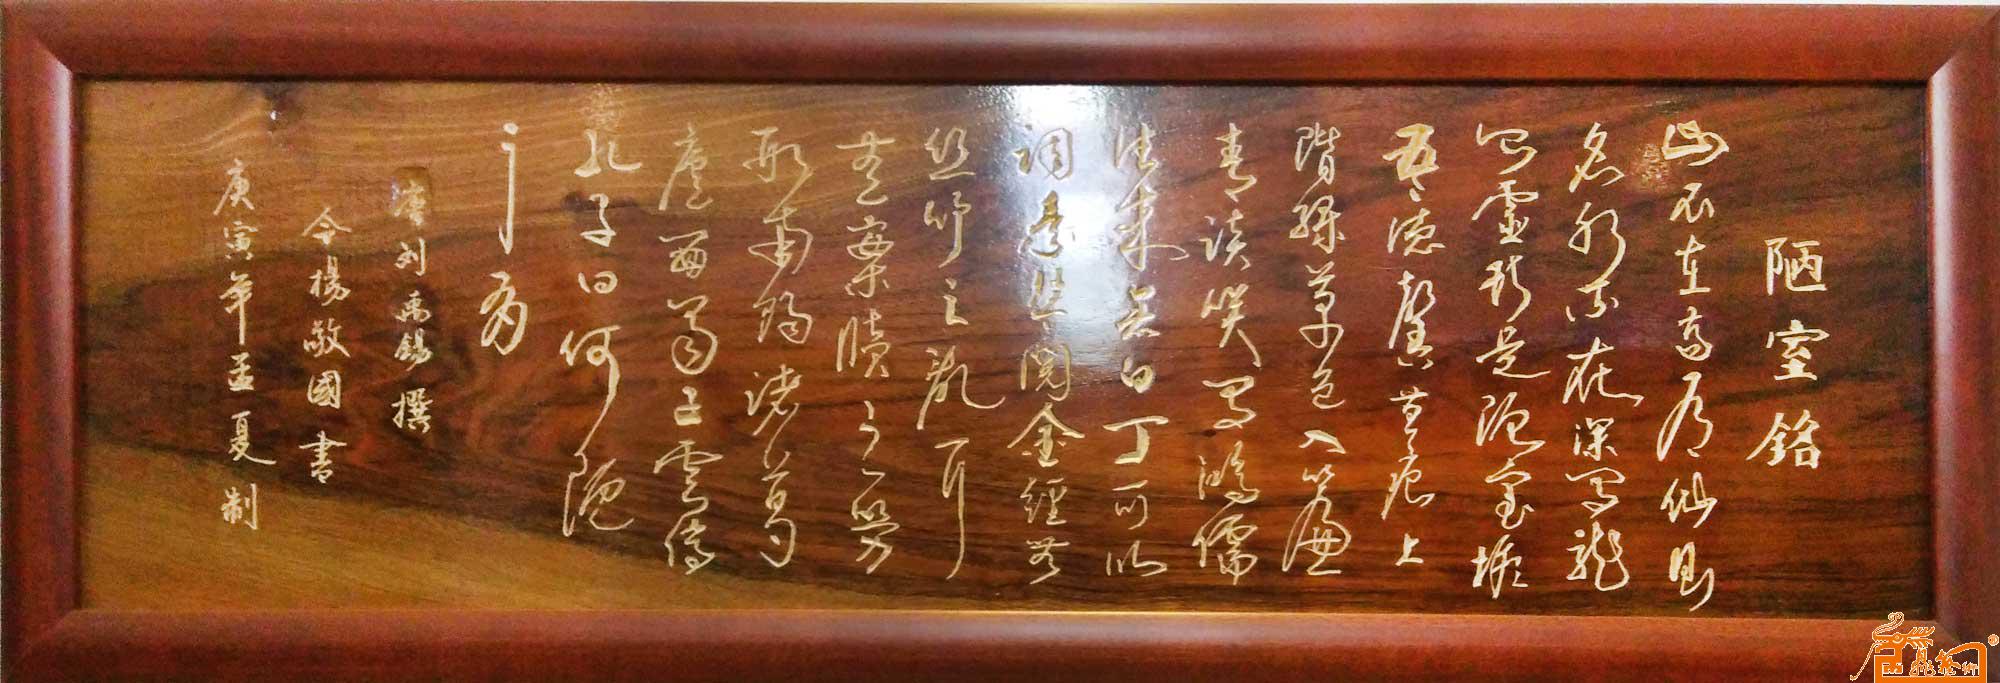 陋室銘
山不在高有仙则
名水不在深有龍
则靈斯是陋室惟
吾德馨苔痕上
階绿草色入簾
青谈笑有鸿儒
往来无白丁可以
调素琴阅金經無
丝竹之乱耳
無案牘之劳
形南阳诸葛
廬西蜀子雲亭
孔子曰何陋
之有
唐刘禹錫撰
今楊敬國書
庚寅年孟夏制